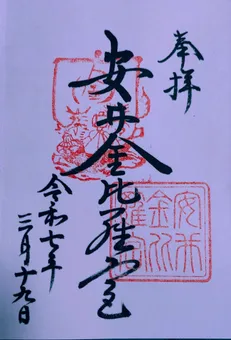 奉拝
安井金比羅宮
安井
金比
羅宮
令和七年
三月十九日